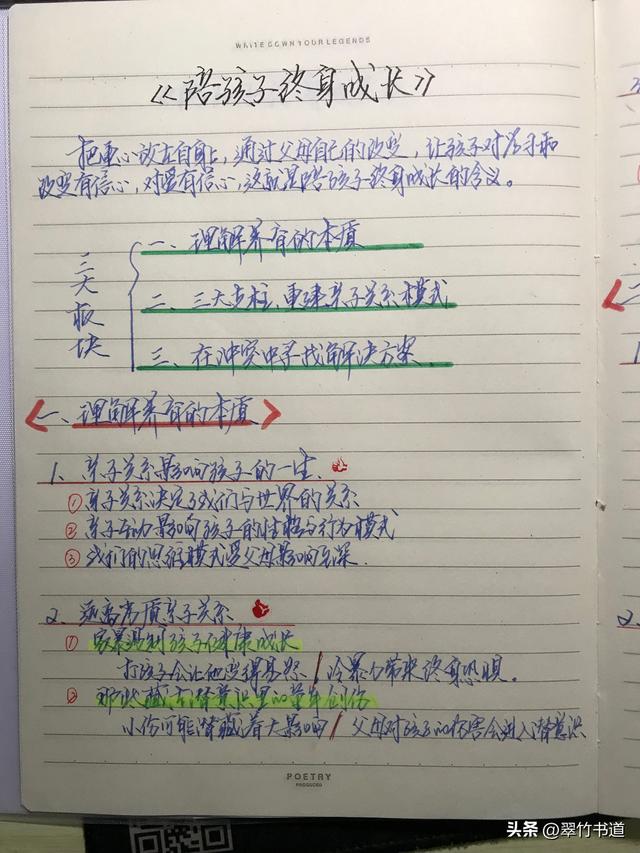 WRITE DOWN YOUR LEGENDS
《陪孩子终身成长》
把重心放在自身上，通过父母自己的改变，让孩子对学习和
改变有信心，对爱有信心，这就是陪孩子终身成长的含义。
三大板块
一、理解养育的本质
二、三大支柱，重建亲子关系模式
三、在冲突中寻找解决方案
一、理解养育的本质
1、亲子关系影响孩子的一生
① 亲子关系决定了我们与世界的关系
② 亲子互动影响孩子的性格与行为模式
③ 我们的思维模式受父母影响至深
2、远离劣质亲子关系
① 家暴遏制孩子健康成长
打孩子会让他变得易怒/冷暴力带来终身恐惧。
② 那些藏在潜意识里的童年创伤
小伤可能潜藏着大影响/父母对孩子的伤害会进入潜意识
POETRY
PRODUCED
头条 @翠竹书道